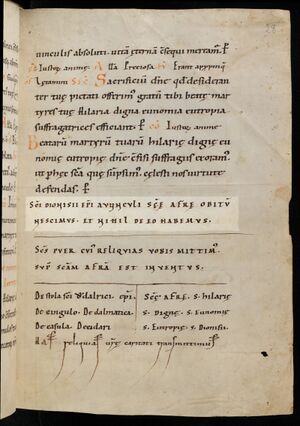 uinculis absoluti. uitā ęternā c̄sequi mereant᷑. P̄
Iustorū animę. All̄a Preciosa. Erant appropinq̄
SACRIFICIŪ dn̄e qd̄ desideran
ter tuę pietati offerim᷒ gratū tibi beatę mar
tyres tuę hilaria digna eunomia eutropia
suffragatrices efficiant. P̄ Iustorū animę
Beatarū martyrū tuarū hilarię dignę eu
nomię eutropię dn̄e c̄fisi suffragiis exoram᷒.
ut p̱ hęc sc̄a quę sūpsim᷒. celesti nos uirtute
defendas. P̄
SC̄I DIONISII EPĪ AUUNCULI SC̄Ę AFRE OBITŪ
NESCIMUS. ET NIHIL DE EO HABEMUS.
SC̄S PUER CUI᷒ RELIQUIAS VOBIS MITTIM᷒.
SUP̱ SC̄AM AFRĀ EST INVENTUS.
De stola sc̄i Vdalrici. ep̄i.
De cingulo. De dalmatica.
De casula. De cidari
Sc̄ę AFRE. s. hilarię
s. Dignę. s. Eunomię
s. Eutropię. s. Dionisii.
Has reliquias ur̄ę caritati transmittimus